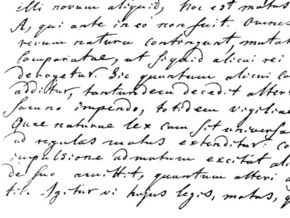 illi novum aliquid, hoc est motus
A, qui ante in eo non fuit. Omnes
rerum natura contingunt, mutat
comparatae, ut si quid alicui rei
derogetur. Sic quantum alicui co
additur, tantundem decedit alteri
somno impendo, totidem vigiliae
Quae naturae lex cum sit universa
ad regulas motus extenditur: co
impulsione ad motum excitat ali
de suo amittit, quantum alteri
tit. Igitur vi hujus legis, motus, q